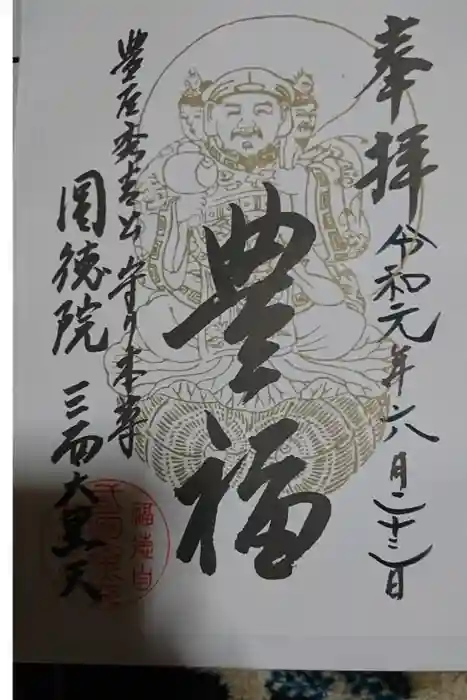 奉拝
令和元年六月二十三日
豊福
豊臣秀吉公 守り本尊
圓徳院 三面大黒天